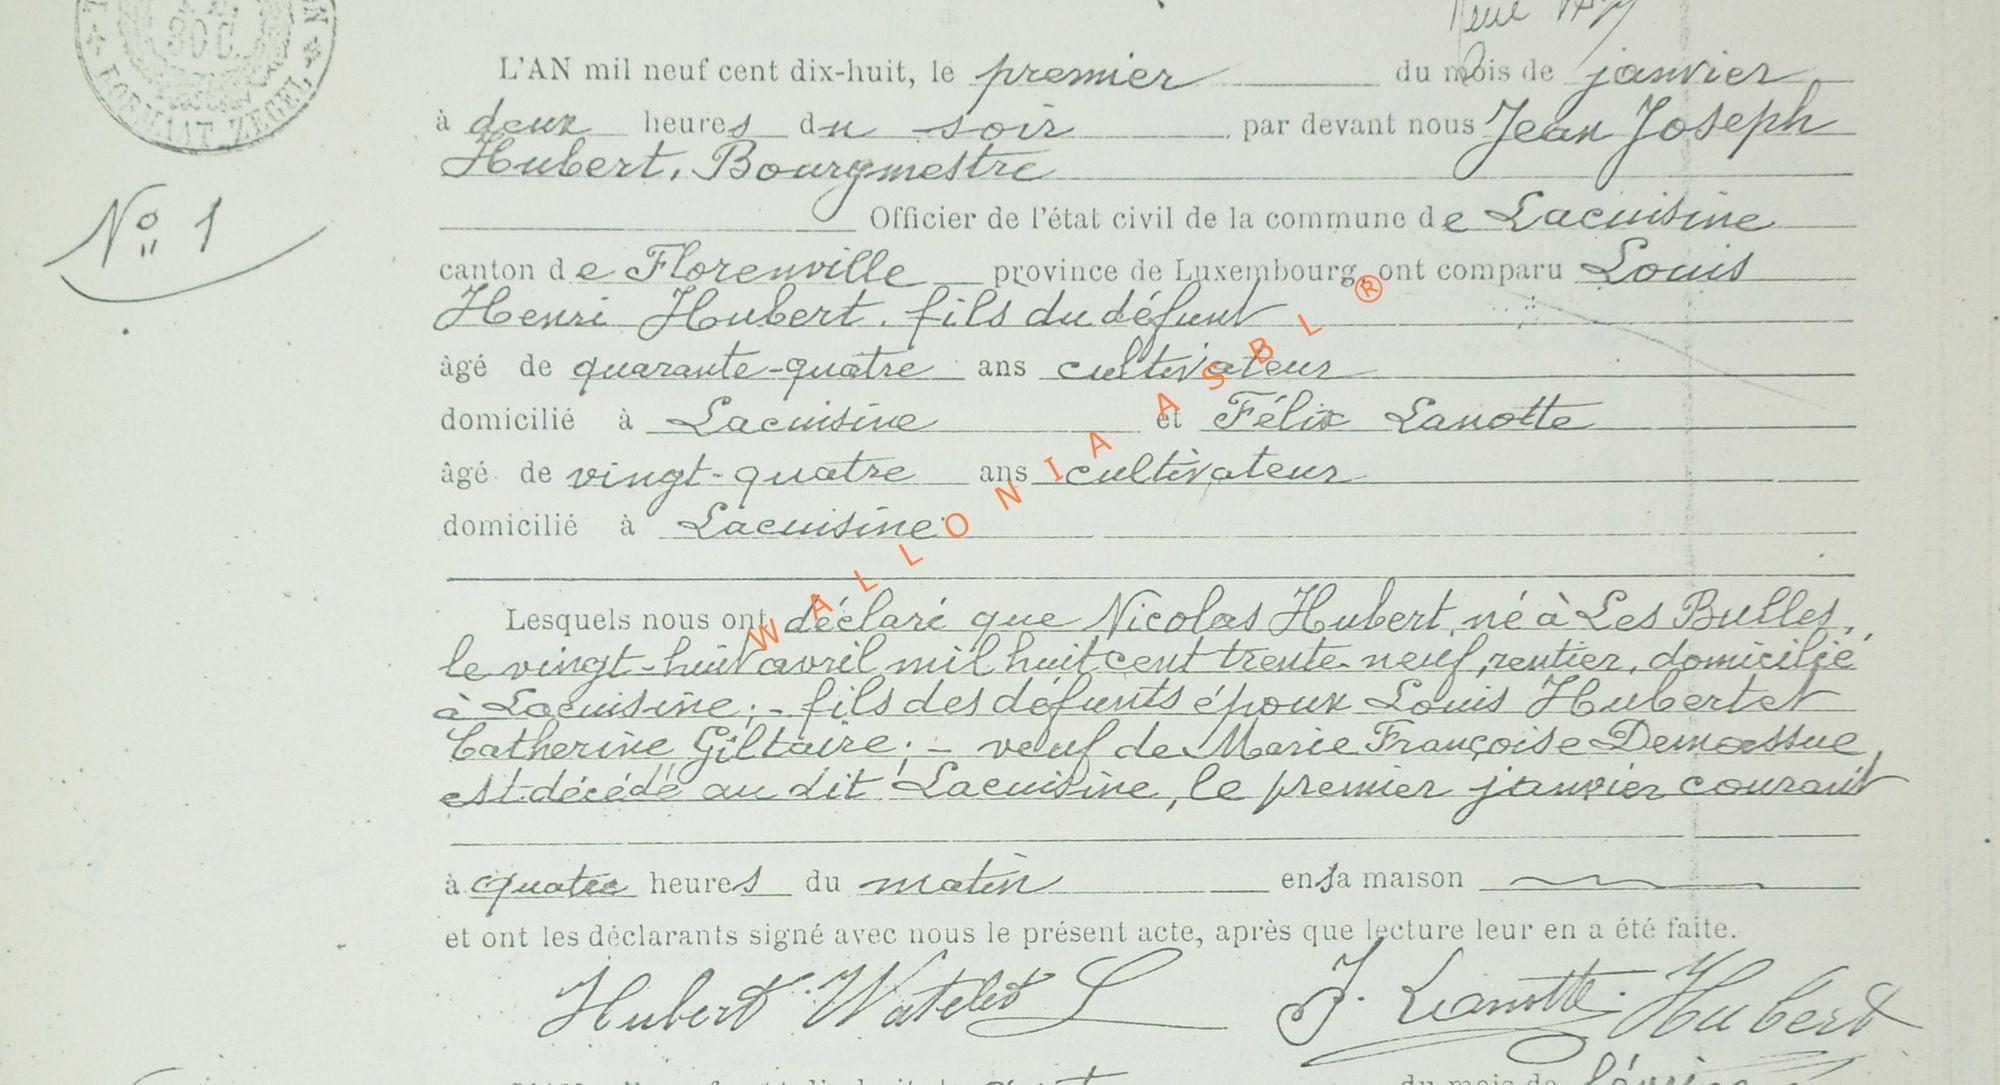 30 C.
FORMAAT ZEGEL
René
L'AN mil neuf cent dix-huit, le premier du mois de janvier
à deux heures du soir par devant nous Jean Joseph
Hubert, Bourgmestre
Nº 1
Officier de l'état civil de la commune de Lacuisine
canton de Florenville province de Luxembourg, ont comparu Louis
Henri Hubert, fils du défunt
âgé de quarante-quatre ans cultivateur
domicilié à Lacuisine et Félix Lanotte
âgé de vingt-quatre ans cultivateur
domicilié à Lacuisine
WALLONIA ASBL ®
Lesquels nous ont déclaré que Nicolas Hubert, né à Les Bulles,
le vingt-huit avril mil huit cent trente-neuf, rentier, domicilié
à Lacuisine; - fils des défunts époux Louis Hubert et
Catherine Giltaire; - veuf de Marie Françoise Demassue,
est décédé au dit Lacuisine, le premier janvier courant
à quatre heures du matin en sa maison
et ont les déclarants signé avec nous le présent acte, après que lecture leur en a été faite.
Hubert Watelet L F. Lanotte. Hubert
du mois de